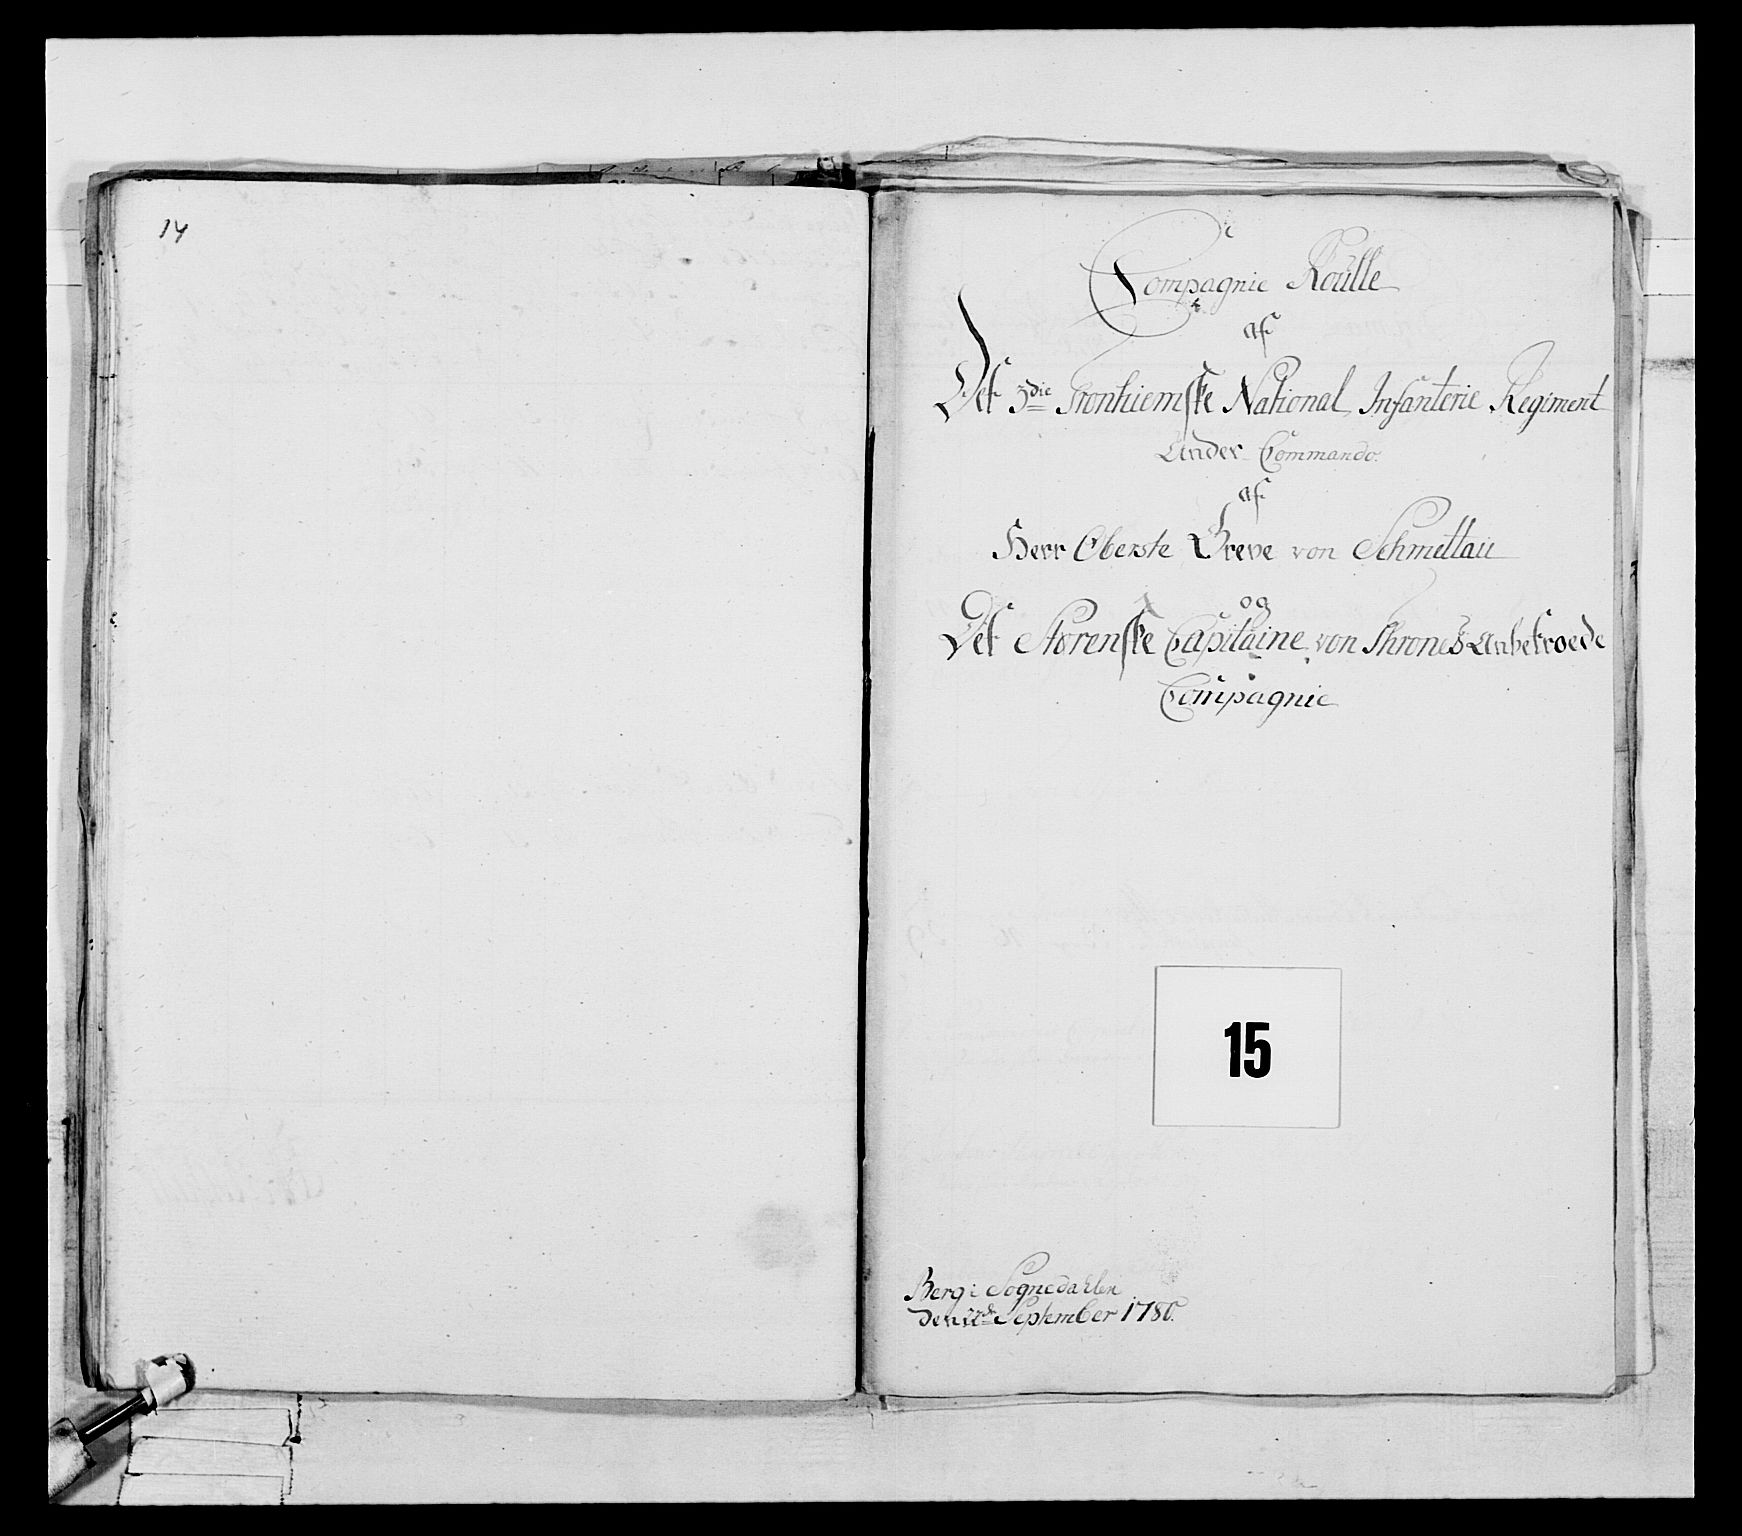 14
Compagnie Roulle
af
Det 3die Tronhiemske National Infanterie Regiment
Under Commando
af
Herr Oberste Greve von Schmettau
og
Det Størenske Capitaine von Khrones Anbetroede
Compagnie
15
Berg i Sognedahlen
den 22de September 1780.